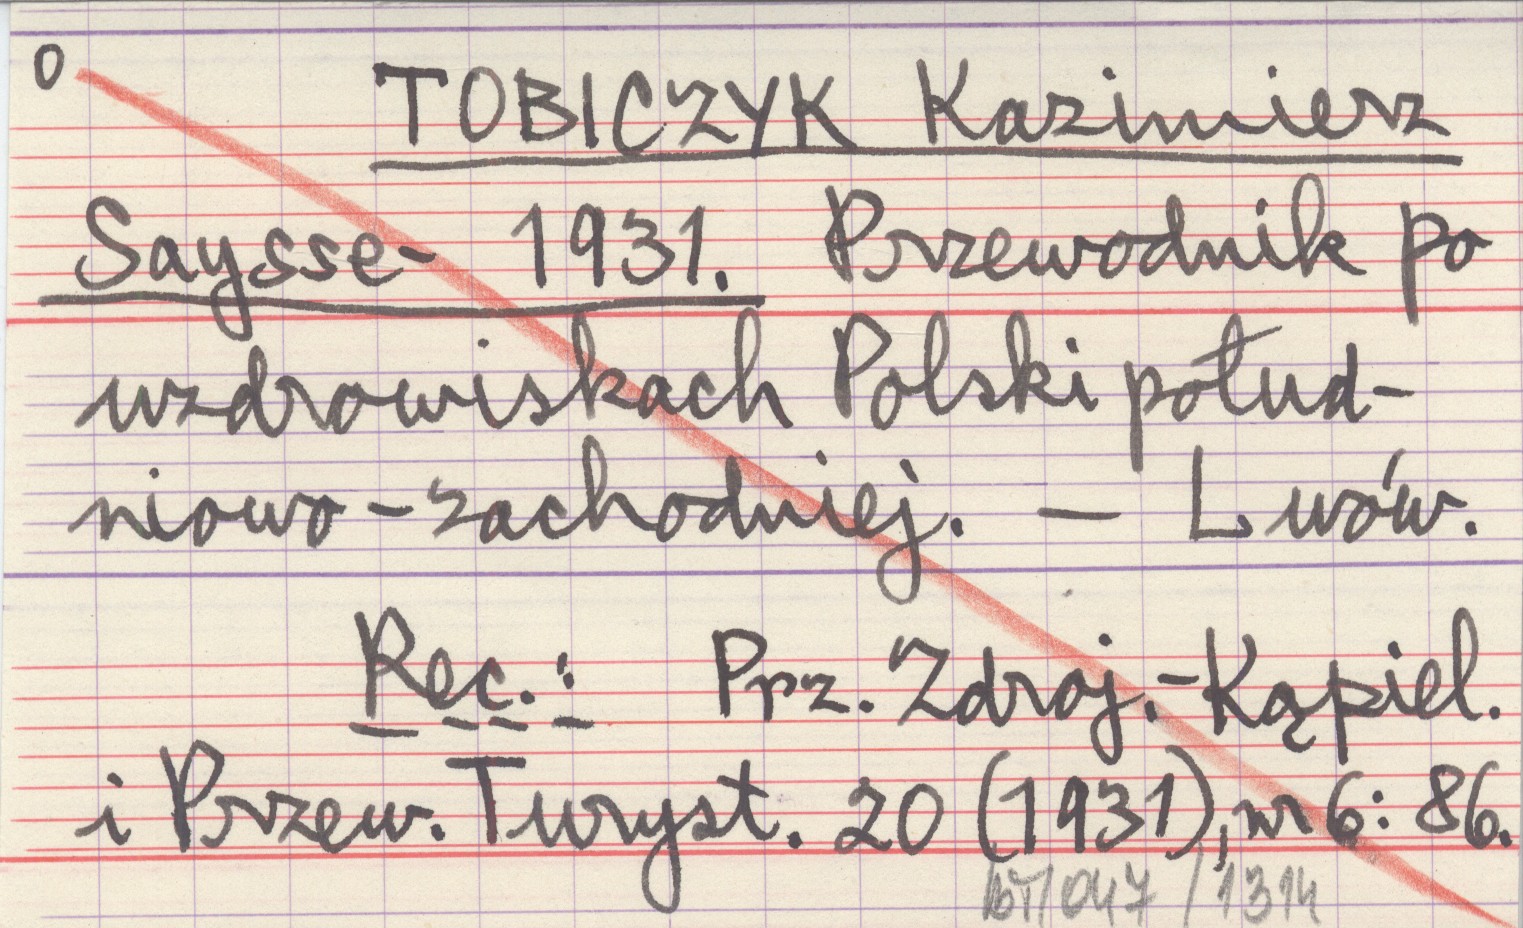 0 TOBICZYK Kazimierz
Saysse- 1931. Przewodnik po
uzdrowiskach Polski połud-
niowo-zachodniej. — Lwów.
Rec.: Prz. Zdroj.-Kąpiel.
i Przew. Turyst. 20 (1931), nr 6: 86.
/047 / 1314